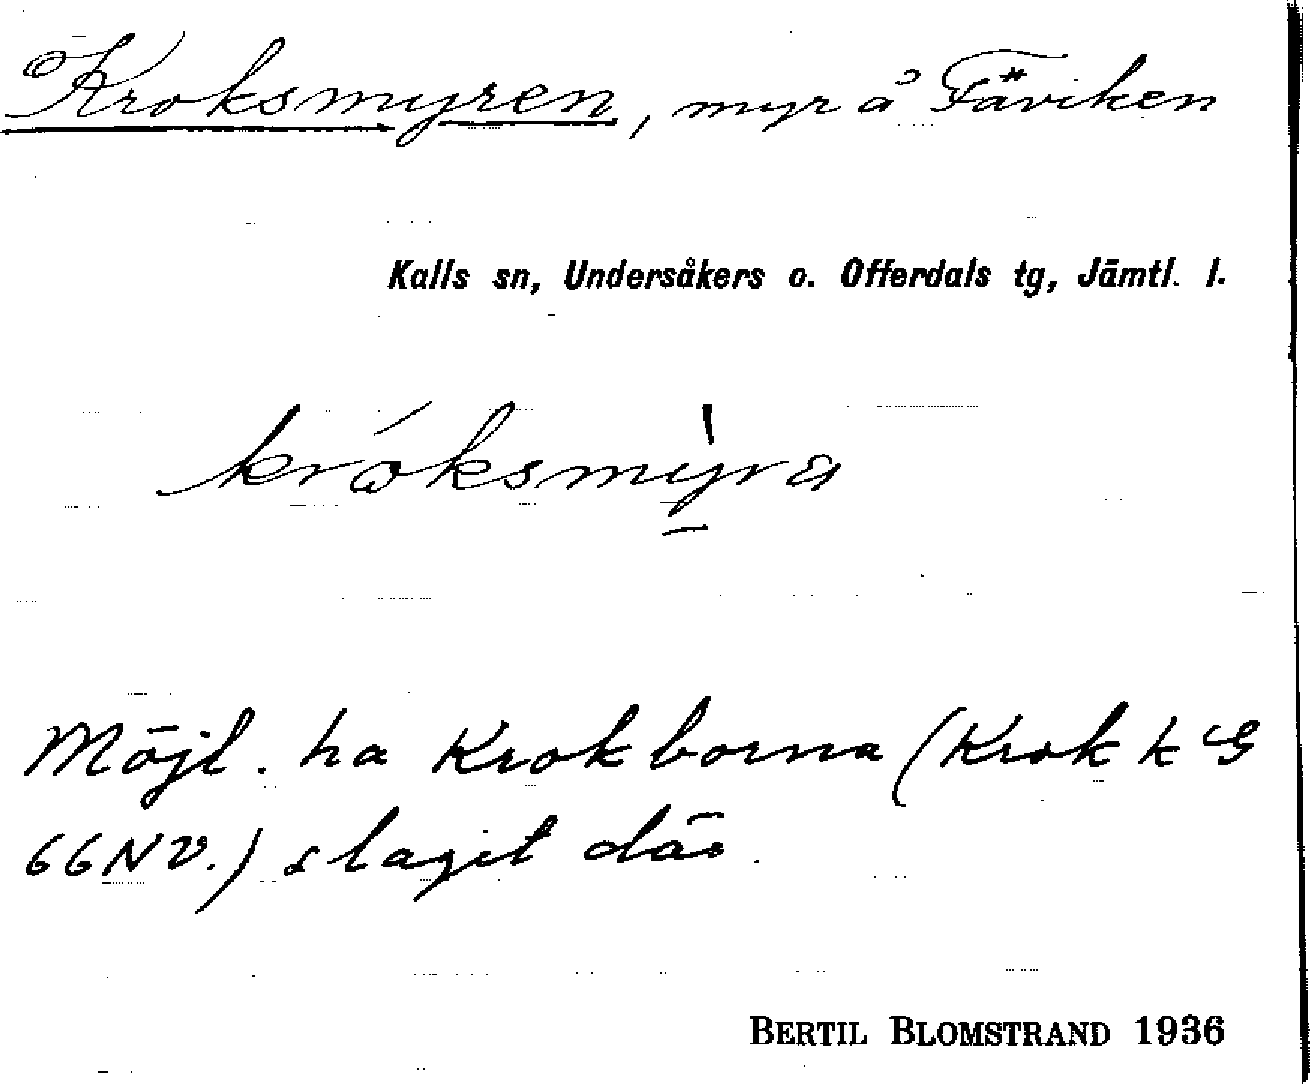 Kroksmyren, myr å Fäviken
Kalls sn, Undersåkers o. Offerdals tg, Jämtl. l.
króksmỳra
Möjl. ha Krokborna (Krok k G
66NV.) slagit där.
BERTIL BLOMSTRAND 1936